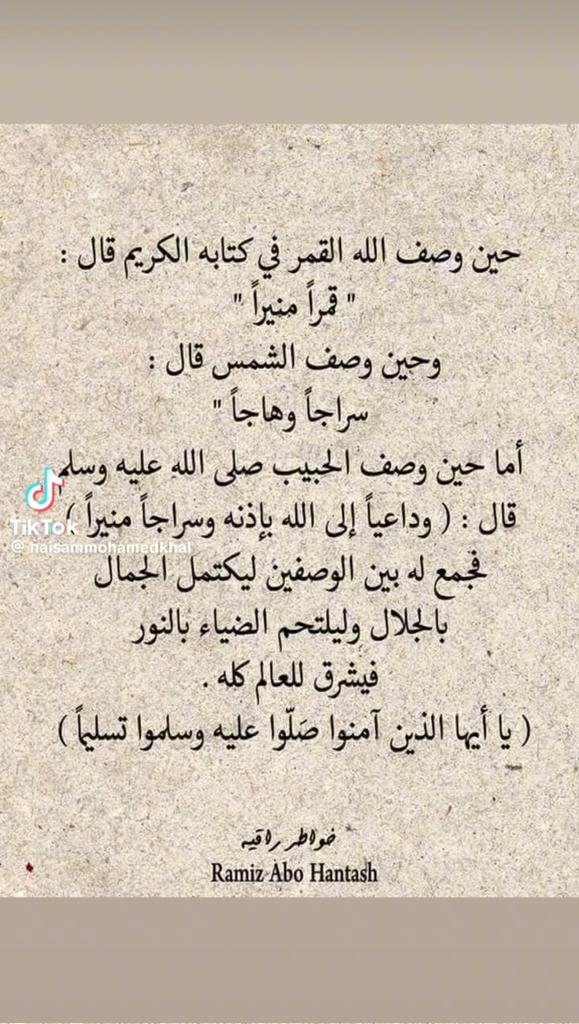 حين وصف الله القمر في كتابه الكريم قال :
" قمراً منيراً "
وحين وصف الشمس قال :
سراجاً وهاجاً "
أما حين وصف الحبيب صلى الله عليه وسلم
قال : ( وداعياً إلى الله بإذنه وسراجاً منيراً )
فجمع له بين الوصفين ليكتمل الجمال
بالجلال وليلتحم الضياء بالنور
فيشرق للعالم كله .
( يا أيها الذين آمنوا صَلّوا عليه وسلموا تسليماً )
TikTok
@ haisammohamedkhal
خواطر راقيه
Ramiz Abo Hantash